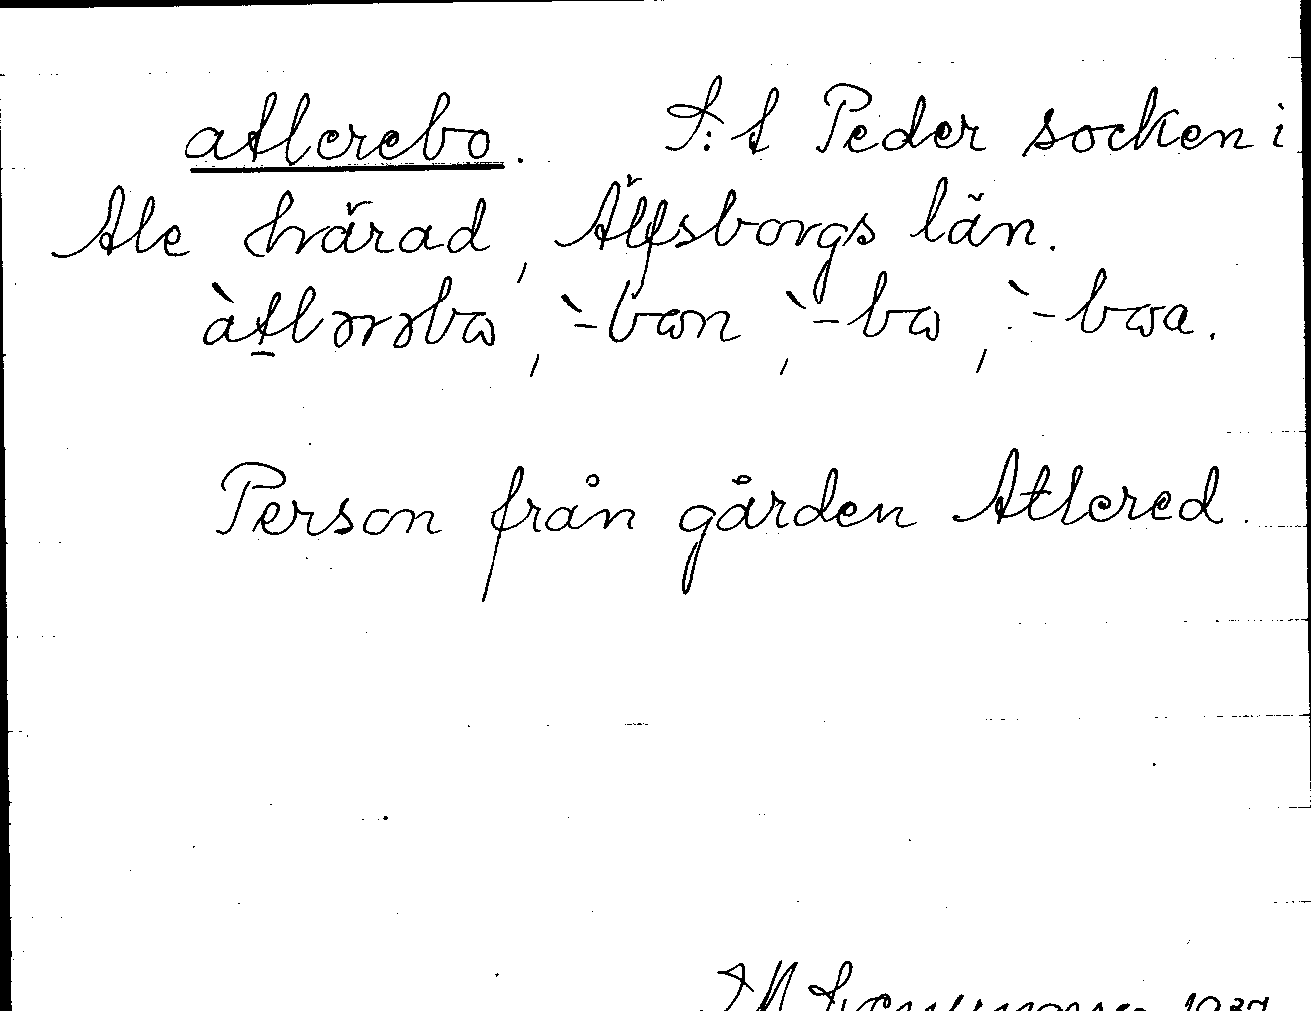 atlerebo. S:t Peder socken i
Ale härad, Älfsborgs län.
àtlɔrɔbɷ, `-bɷn, `-bɷ, `-bɷa.
Person från gården Atlered.